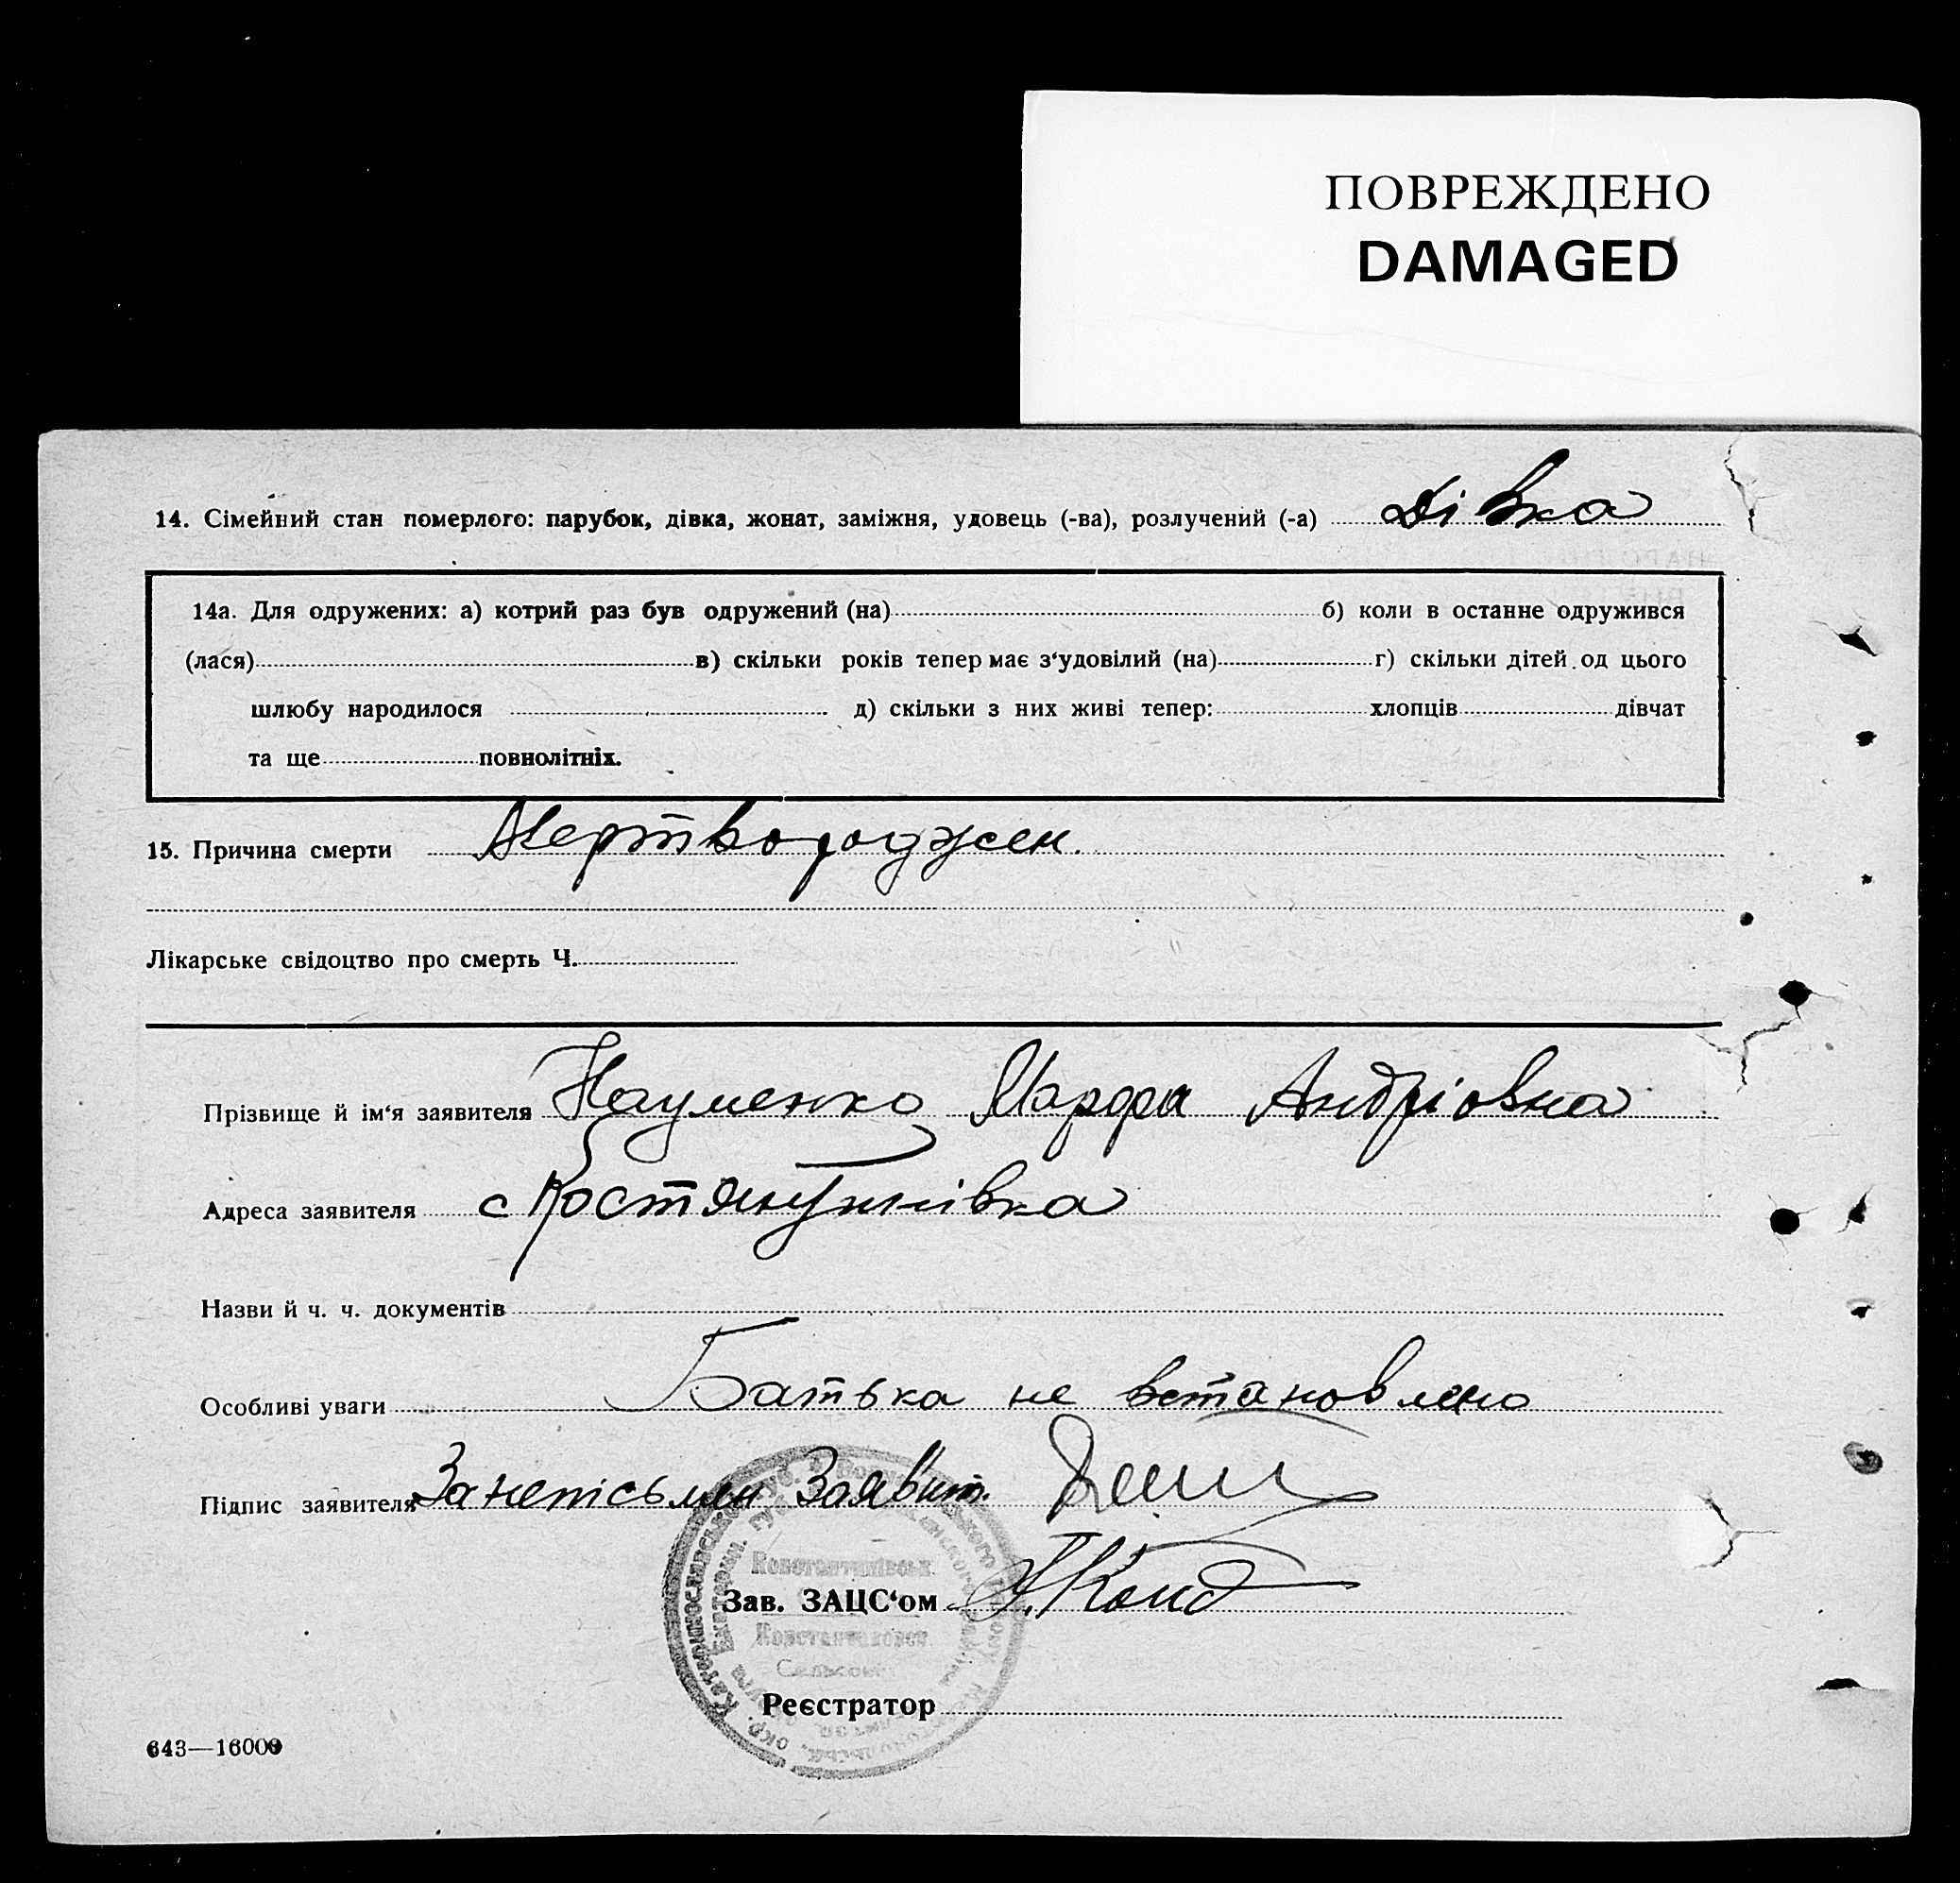 ПОВРЕЖДЕНО
DAMAGED
14. Сімейний стан померлого: парубок, дівка, жонат, заміжня, удовець (-ва), розлучений (-а) Дівка
14а. Для одружених: а) котрий раз був одружений (на) б) коли в останне одружився
(лася) в) скільки років тепер має з‘удовілий (на) г) скільки дітей од цього
шлюбу народилося д) скільки з них живі тепер: хлопців дівчат
та ще повнолітніх.
15. Причина смерти Мертвороджен.
Лікарське свідоцтво про смерть Ч.
Прізвище й ім‘я заявителя Науменко Марфа Андріовна
Адреса заявителя с Костянтинівка
Назви й ч. ч. документів
Особливі уваги Батька не встановлено
Підпис заявителя За неписьмен Заявит.
Константинівськ
Зав. ЗАЦС‘ом
Реєстратор
643—16000